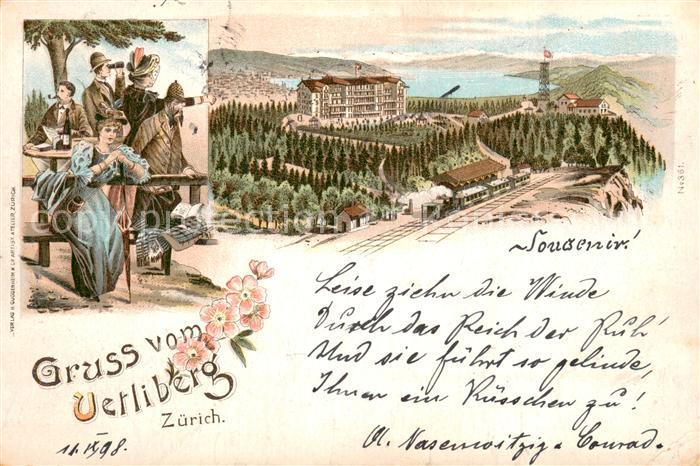 VERLAG H. GUGGENHEIM & Co ARTIST. ATELIER, ZÜRICH
No 361.
Gruss vom
Uetliberg
Zürich.
11. IX 98.
Souvenir!
Leise ziehn die Winde
Durch das Reich der Ruh'
Und sie führt so gelinde,
Ihnen ein Küsschen zu!
A. Nasenwitzig & Conrad.